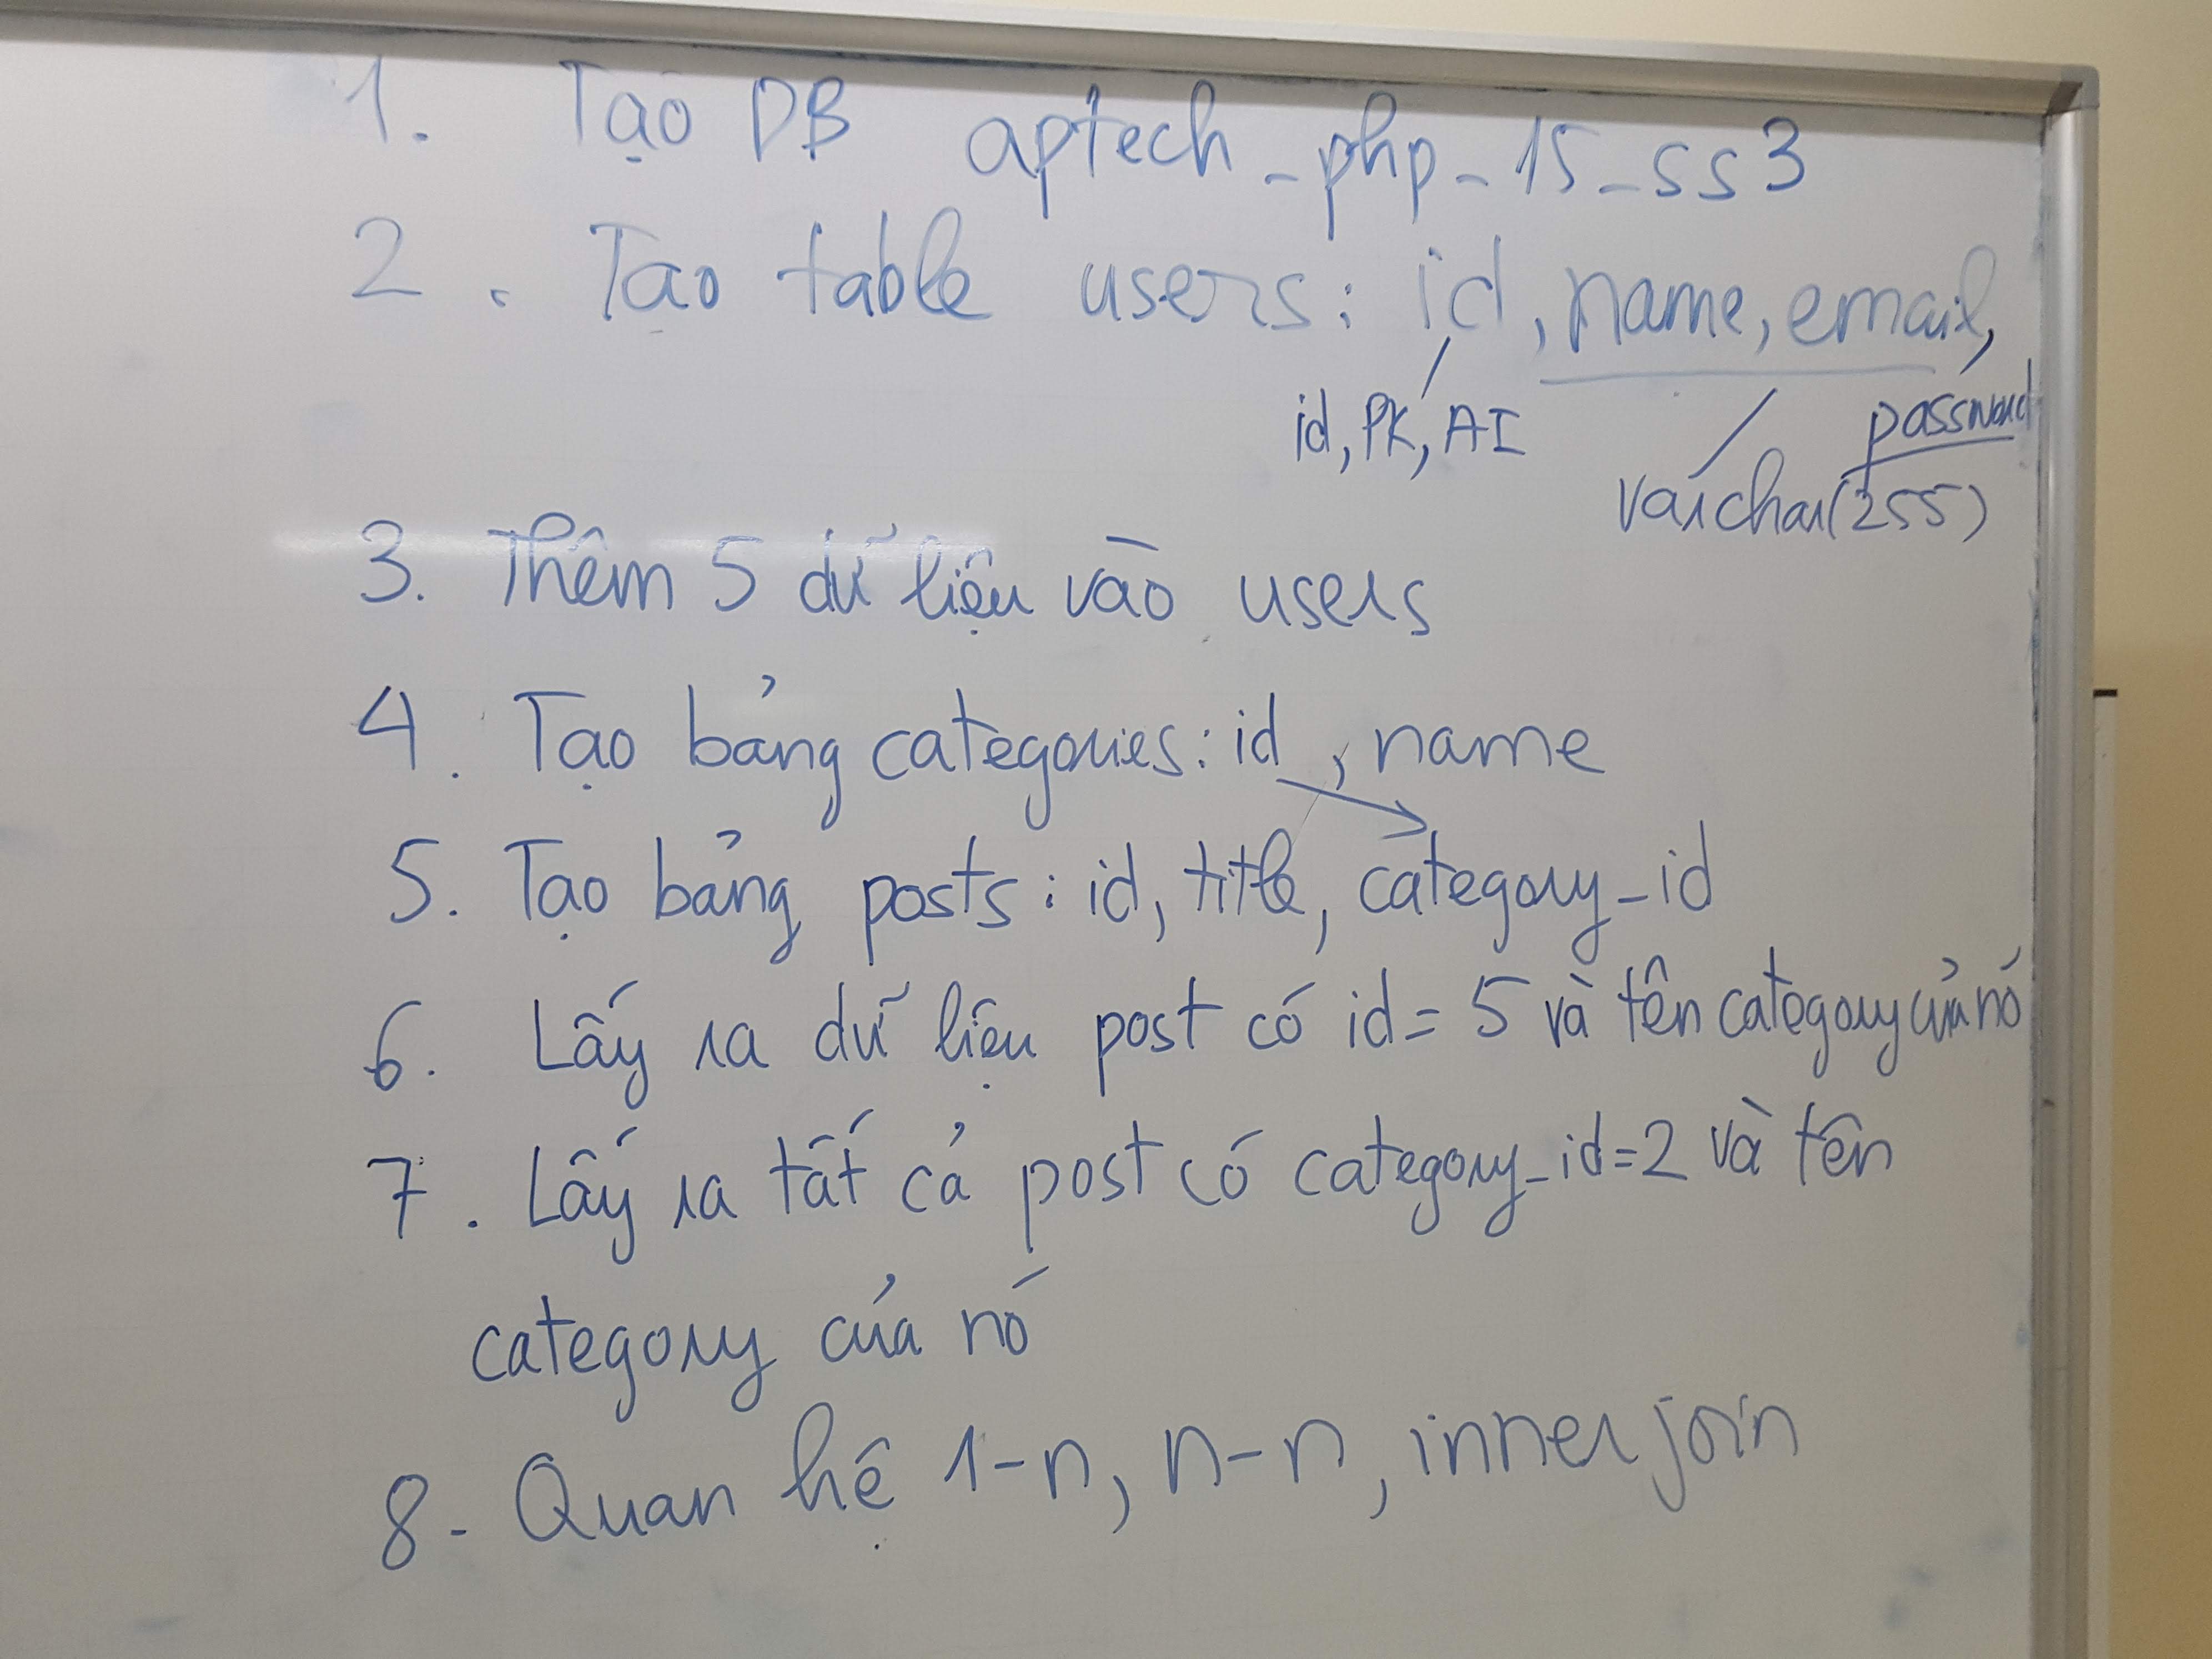 1. Tạo DB aptech_php_15_ss3
2. Tạo table users: id, name, email,
password
id, PK, AI
varchar(255)
3. Thêm 5 dữ liệu vào users
4. Tạo bảng categories: id, name
5. Tạo bảng posts: id, title, category_id
6. Lấy ra dữ liệu post có id = 5 và tên category của nó
7. Lấy ra tất cả post có category_id=2 và tên
category của nó
8. Quan hệ 1-n, n-n, inner join